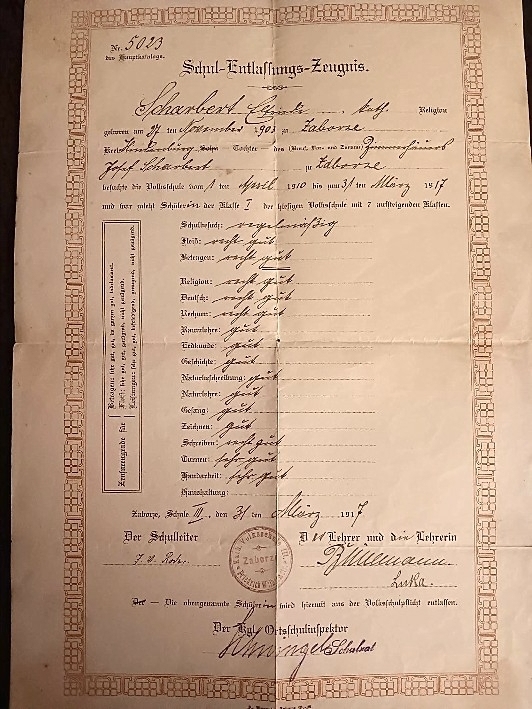 Nr. 5023
des Hauptkatalogs.
Schul-Entlassungs-Zeugnis.
Scharbert kath. Religion
geboren am 27 ten November 1903 zu Zaborze
Kreis Hindenburg Sohn Tochter des (Beruf, Vor- und Zuname) Zimmerhäuers
Josef Scharbert zu Zaborze
besuchte die Volksschule vom 1 ten April 1910 bis zum 31 ten März 1917
und war zuletzt Schülerin der Klasse I der hiesigen Volksschule mit 7 aufsteigenden Klassen.
Schulbesuch: regelmäßig
Fleiß: recht gut
Betragen: recht gut
Religion: recht gut
Deutsch: recht gut
Rechnen: recht gut
Raumlehre: gut
Erdkunde: gut
Geschichte: gut
Naturbeschreibung: gut
Naturlehre: gut
Gesang: gut
Zeichnen: gut
Schreiben: recht gut
Turnen: sehr gut
Handarbeit: sehr gut
Haushaltung:
Zensurengrade für
Betragen: sehr gut, gut,
Fleiß: sehr gut, gut, genügend, nicht genügend.
Leistungen: sehr gut, gut, genügend, nicht genügend.
Zaborze, Schule III, den 31 ten März 1917
Der Schulleiter
Der Lehrer und die Lehrerin
J. V.
Zaborze
Luka.
Der — Die obengenannte Schülerin wird hiermit aus der Volksschulpflicht entlassen.
Der Kgl. Ortsschulinspektor
Schulrat